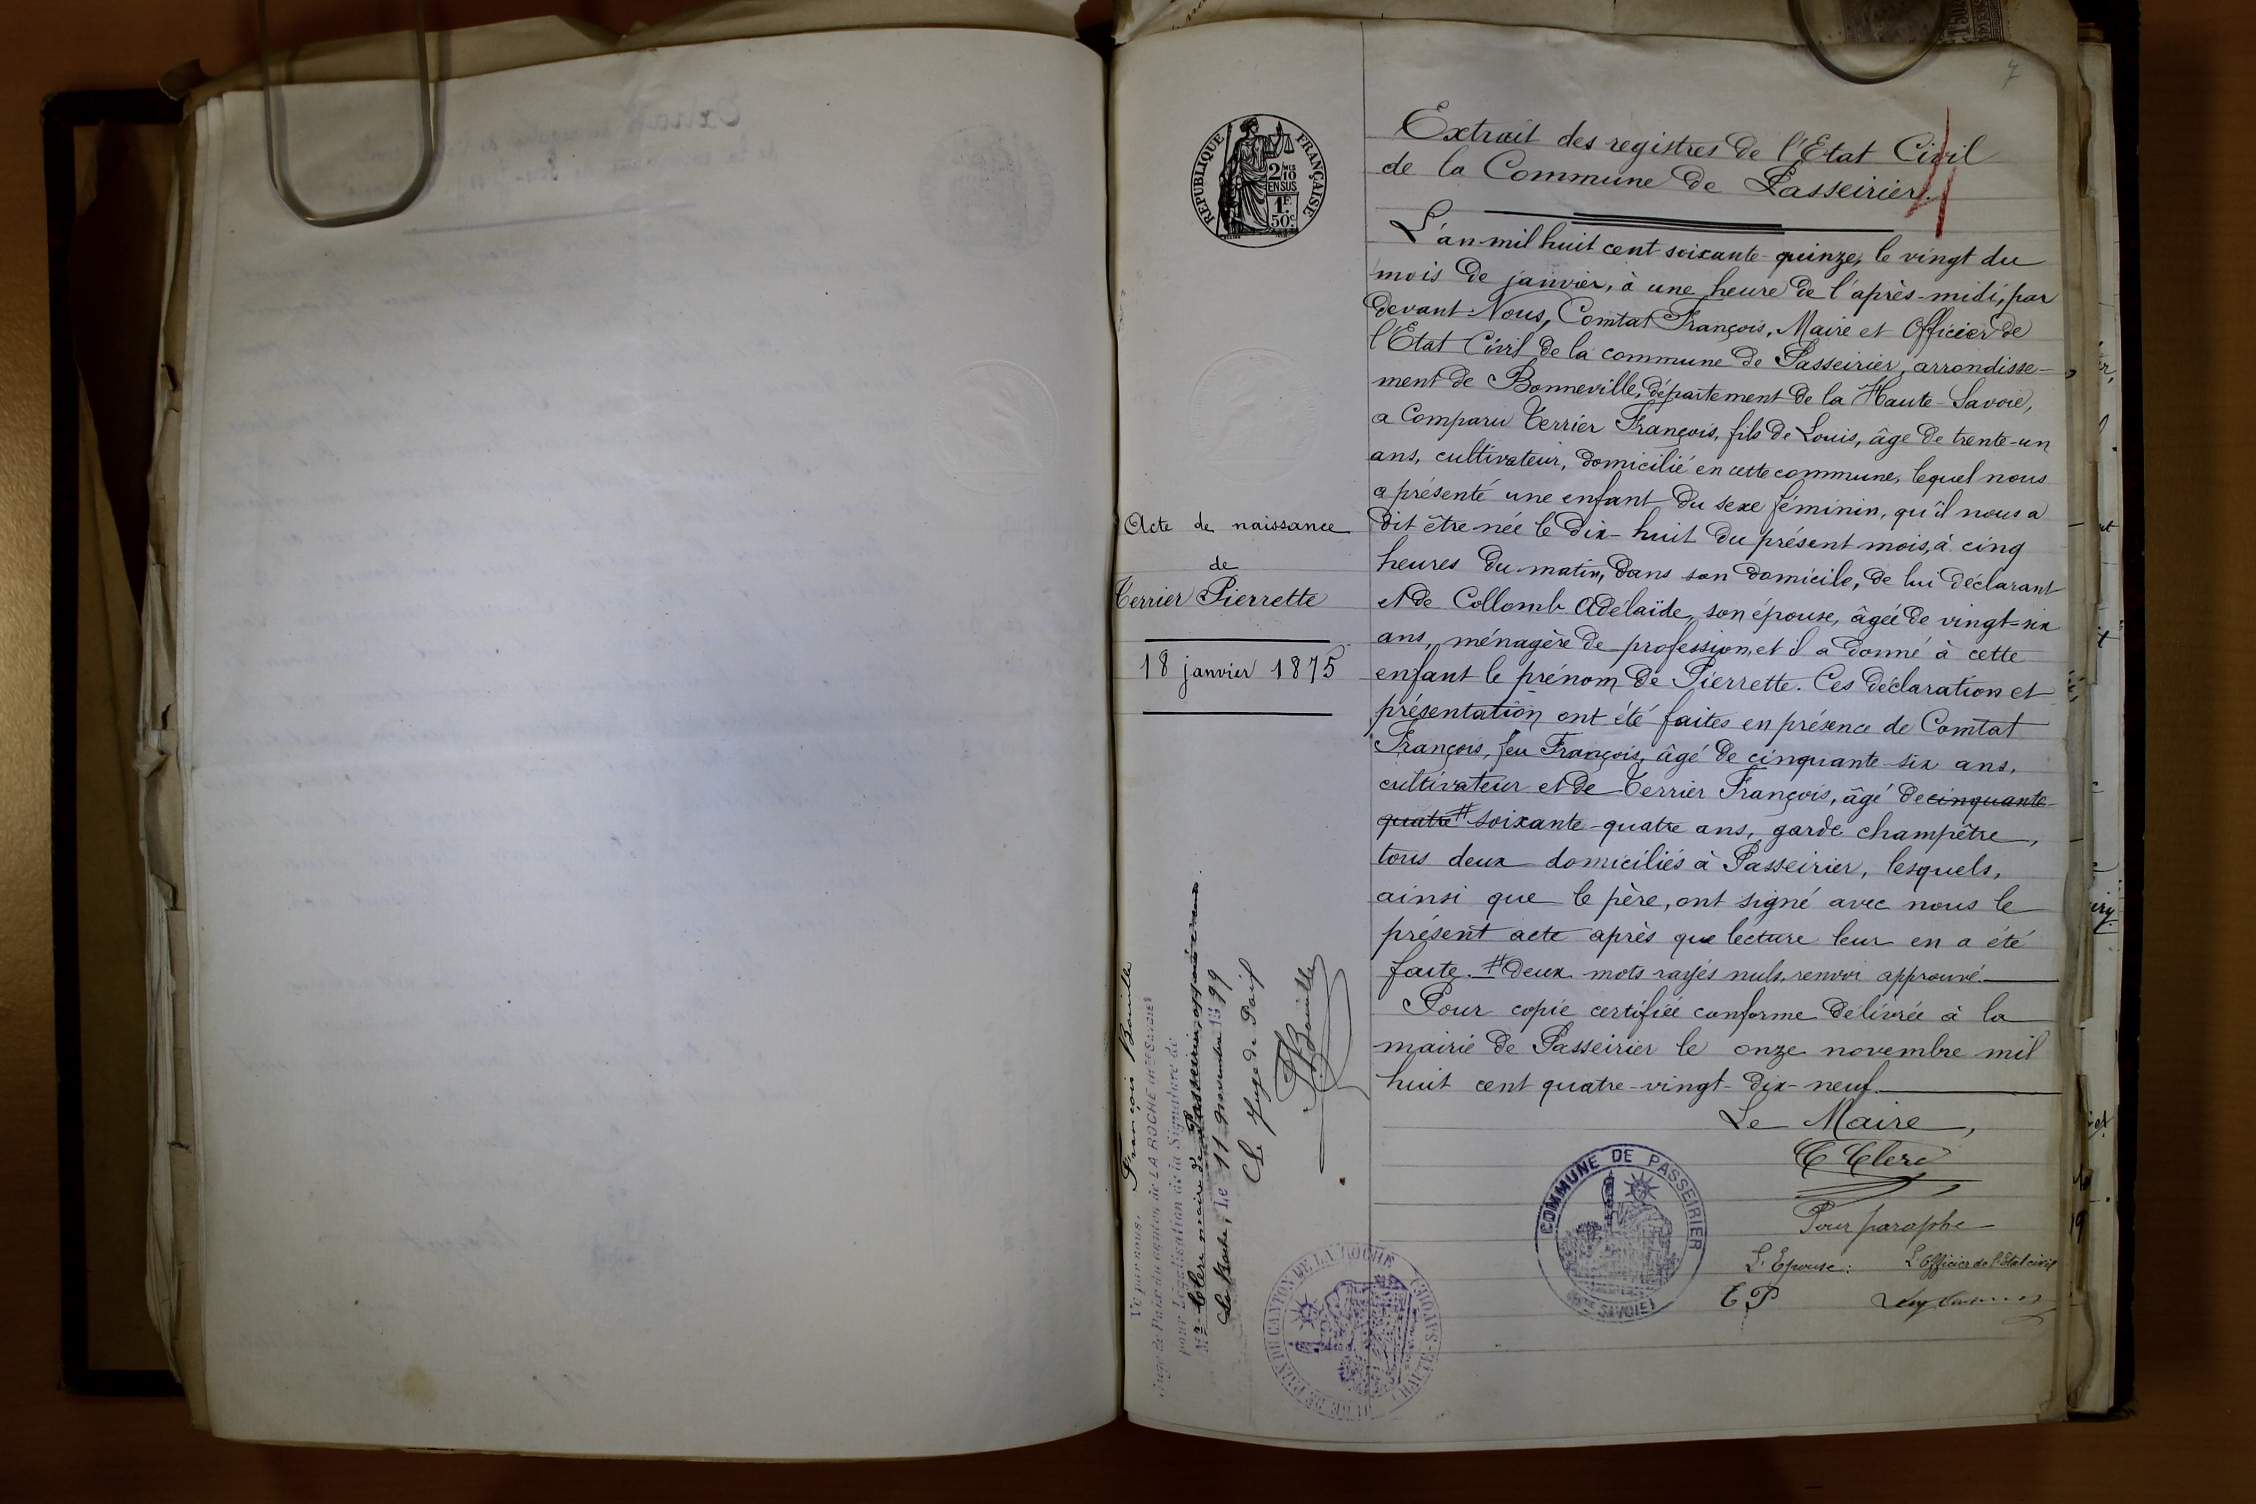 7
RÉPUBLIQUE FRANÇAISE
2/10
EN SUS
1F
50c.
Extrait des registres de l'Etat Civil
de la Commune de Passeirier.
L'an mil huit cent soixante-quinze, le vingt du
mois de janvier, à une heure de l'après-midi, par
devant Nous, Comtat François, Maire et Officier de
l'Etat Civil de la commune de Passeirier, arrondisse-
ment de Bonneville, département de la Haute-Savoie,
a comparu Terrier François, fils de Louis, âgé de trente-un
ans, cultivateur, domicilié en cette commune, lequel nous
a présenté une enfant du sexe féminin, qu'il nous a
dit être née le dix-huit du présent mois, à cinq
heures du matin, dans son domicile, de lui déclarant
et de Collomb Adélaïde, son épouse, âgée de vingt-six
ans, ménagère de profession, et il a donné à cette
enfant le prénom de Pierrette. Ces déclaration et
présentation ont été faites en présence de Comtat
François, feu François, âgé de cinquante-six ans,
cultivateur et de Terrier François, âgé de cinquante-
quatre # soixante-quatre ans, garde champêtre,
tous deux domiciliés à Passeirier, lesquels,
ainsi que le père, ont signé avec nous le
présent acte après que lecture leur en a été
faite. # deux mots rayés nuls, renvoi approuvé.
Pour copie certifiée conforme délivrée à la
mairie de Passeirier le onze novembre mil
huit cent quatre-vingt-dix-neuf.
Le Maire,
C Clerc
Pour paraphe
L'Epouse: L'Officier de l'Etat civil
T P
COMMUNE DE PASSEIRIER
(HTE SAVOIE)
Acte de naissance
de
Terrier Pierrette
18 janvier 1875
Vu par nous, François Bouille
Juge de Paix du canton de LA ROCHE (Hte SAVOIE)
pour Légalisation de la Signature de
Mr Clerc maire de Passeirier, apposée
La Roche, Le 11 novembre 1899
Le Juge de Paix
F Bouille
JUGE DE PAIX DU CANTON DE LA ROCHE (HAUTE-SAVOIE)